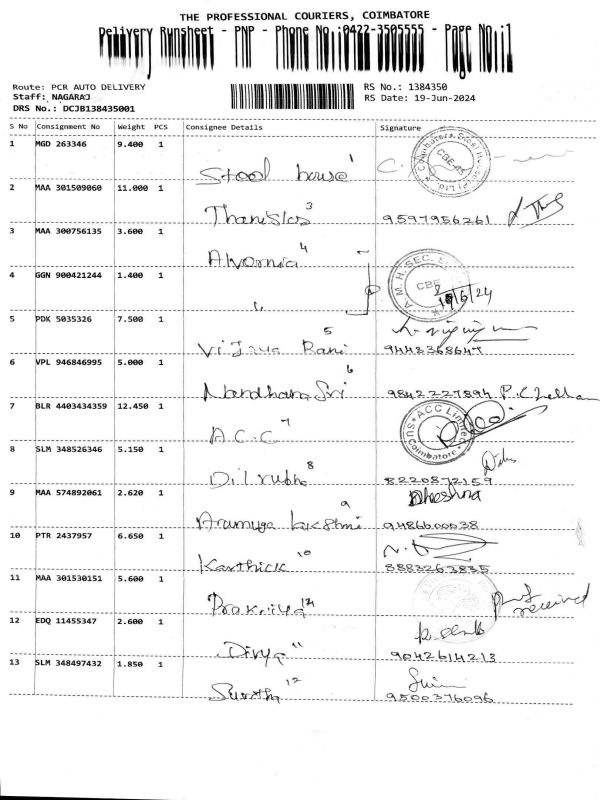 THE PROFESSIONAL COURIERS, COIMBATORE
Delivery Runsheet - PNP - Phone No.:0422-3505555 - Page No.:1
Route: PCR AUTO DELIVERY
RS No.: 1384350
Staff: NAGARAJ
RS Date: 19-Jun-2024
DRS No.: DCJB138435001
S No Consignment No Weight PCS Consignee Details Signature
1 MGD 263346 9.400 1
Steel house 1
2 MAA 301509060 11.000 1
3 9597956261
3 MAA 300756135 3.600 1
4
4 GGN 900421244 1.400 1
A.M.H. SEC. CBE
19/6/24
5 PDK 5035326 7.500 1
Vijaya Rani 5 9442368647
6 VPL 946846995 5.000 1
Nandhana Sri 6 9842227894
7 BLR 4403434359 12.450 1
A.C.C 7 ACC Limited Coimbatore
8 SLM 348526346 5.150 1
Dilrubha 8 8220872159
9 MAA 574892061 2.620 1
Arumuga lakshmi 9 9486600038
10 PTR 2437957 6.650 1
Karthick 10 8883263835
11 MAA 301530151 5.600 1
12 received
12 EDQ 11455347 2.600 1
Divya 11 9042614213
13 SLM 348497432 1.850 1
12 9500376096